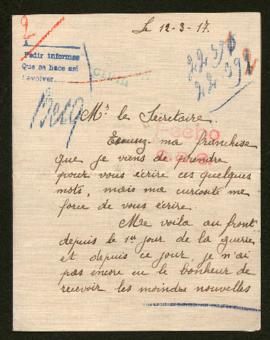 Le 12-3-17.
2
A
Pedir informes
Que se hace así
devolver.
Mr le Secrétaire.
Excusez ma franchise
que je viens de prendre
pour vous écrire ces quelques
mots, mais ma curiosité me
force de vous écrire.
Me voila au front
depuis le 1er jour de la guerre
et depuis ce jour, je n'ai
pas encore eu le bonheur de
recevoir les moindres nouvelles